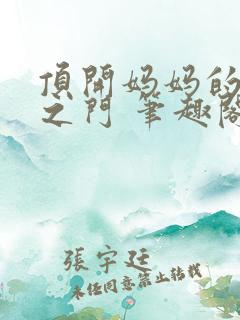 頂開妈妈的
之门 筆趣阁
張宇廷
未经同意禁止转载